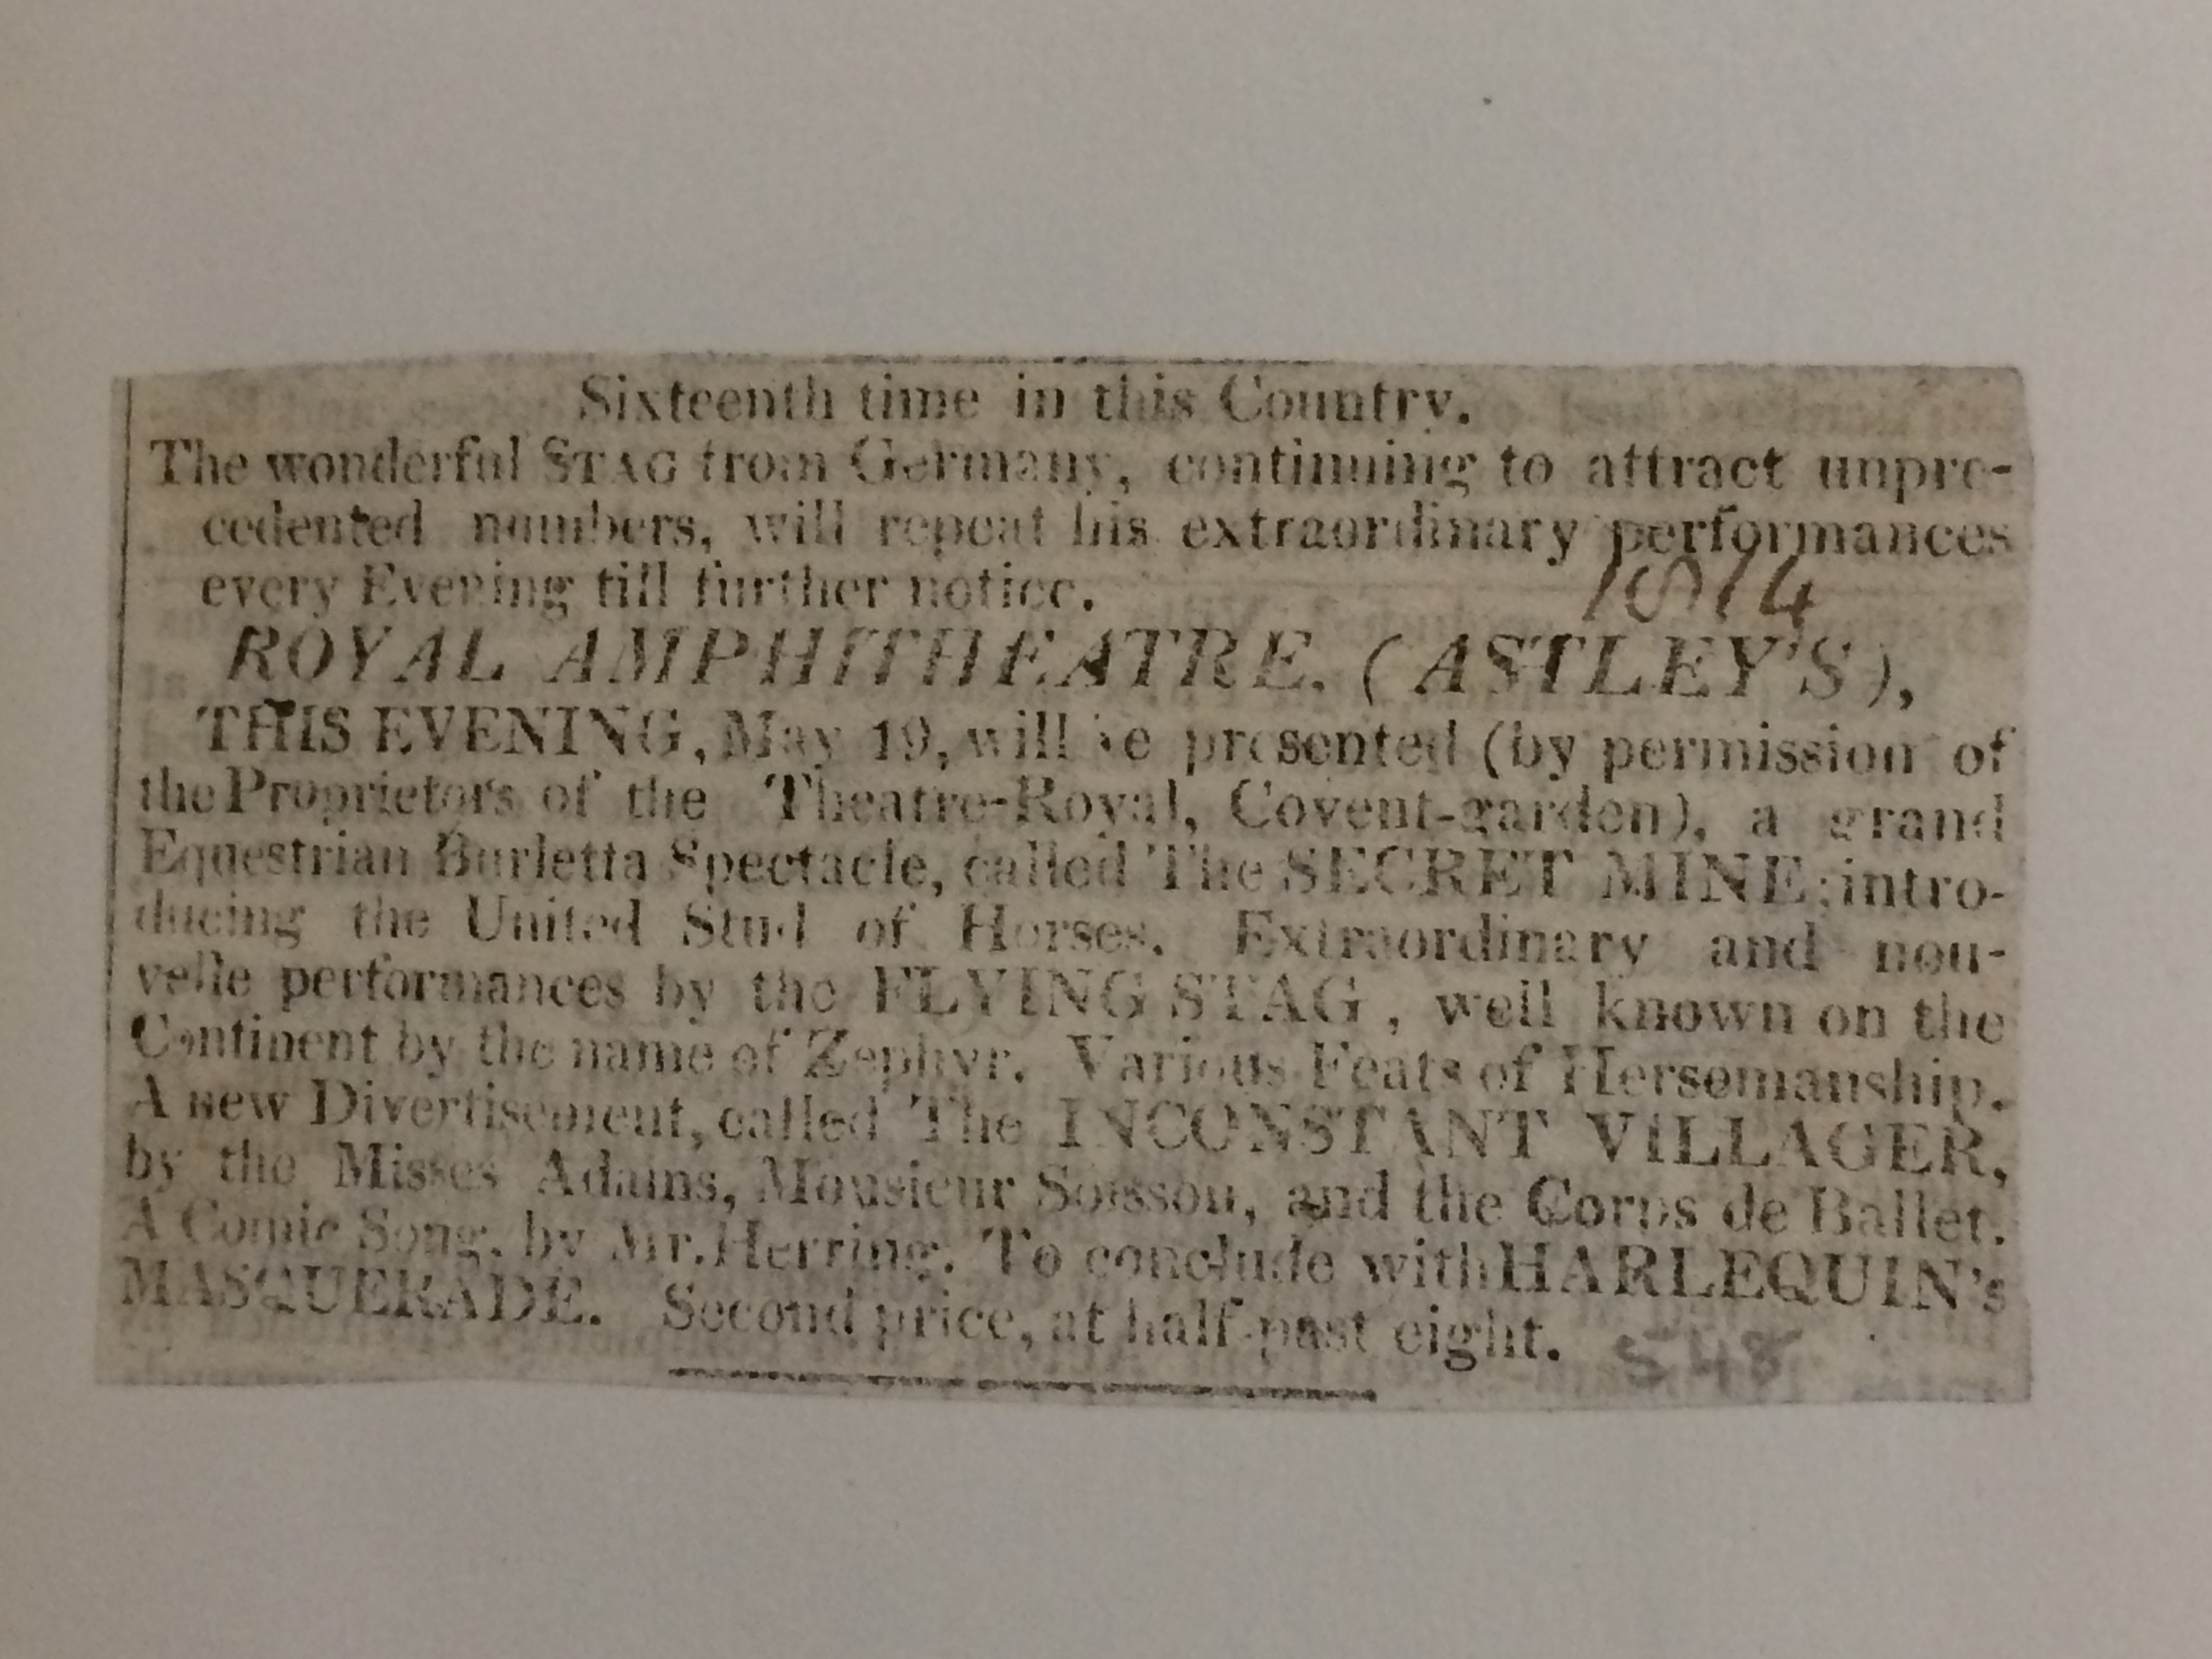 Sixteenth time in this Country.
The wonderful STAG from Germany, continuing to attract unpre-
cedented numbers, will repeat his extraordinary performances
every Evening till further notice.
1814
ROYAL AMPHITHEATRE. (ASTLEY'S),
THIS EVENING, May 19, will be presented (by permission of
the Proprietors of the Theatre-Royal, Covent-garden), a grand
Equestrian Burletta Spectacle, called The SECRET MINE; intro-
ducing the United Stud of Horses. Extraordinary and nou-
velle performances by the FLYING STAG, well known on the
Continent by the name of Zephyr. Various Feats of Hersemanship.
A new Divertisement, called The INCONSTANT VILLAGER,
by the Misses Adams, Monsieur Soisson, and the Corps de Ballet.
A Comic Song, by Mr. Herring. To conclude with HARLEQUIN's
MASQUERADE. Second price, at half-past eight.
548